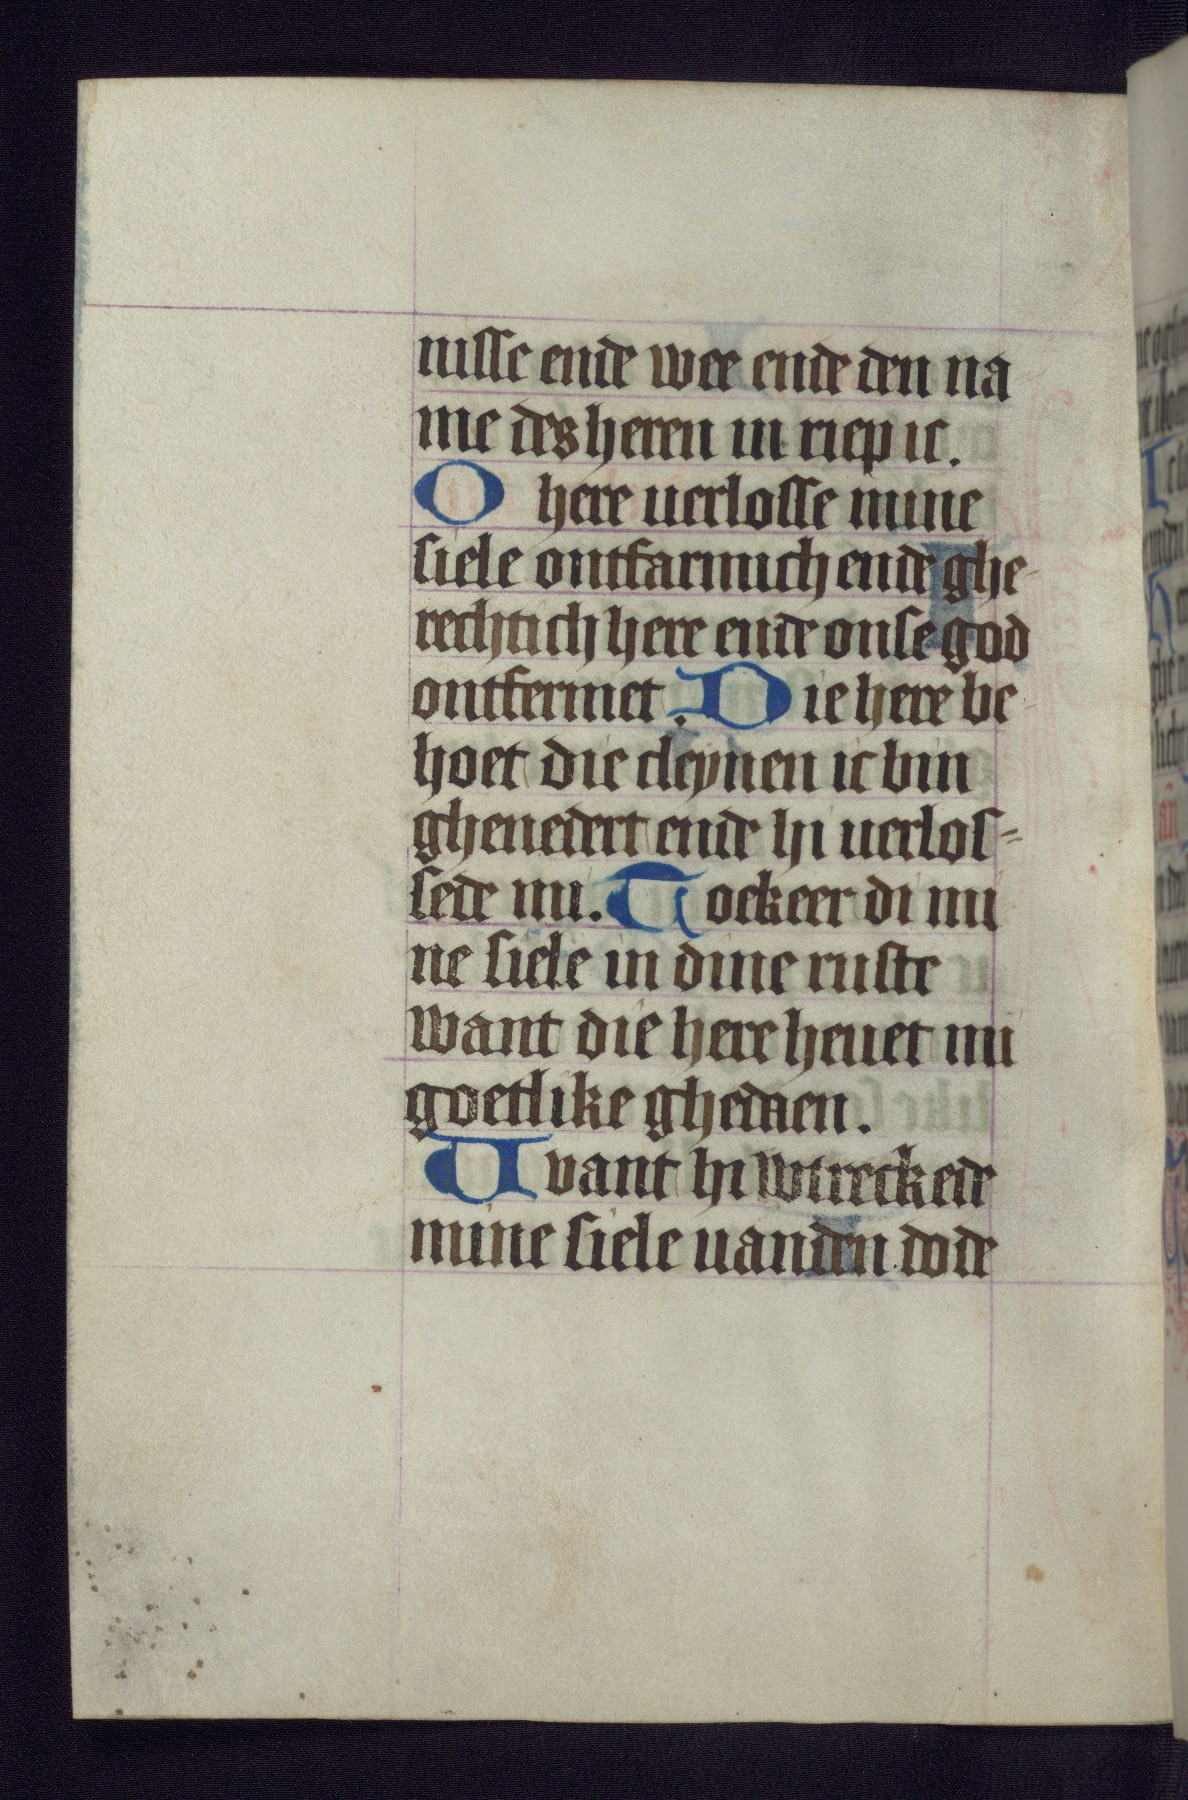 nisse ende wee ende den na
me des heren in riep ic.
O here uerlosse mine
siele ontfarmich ende ghe-
rechtich here ende onse god
ontfermet. Die here be
hoet die cleynen ic bin
ghenedert ende hi uerlos-
sede mi. Tockeer di mi
ne siele in dine ruste
want die here heuet mi
goetlike ghedaen.
Uvant hi wtreckede
mine siele uanden dode